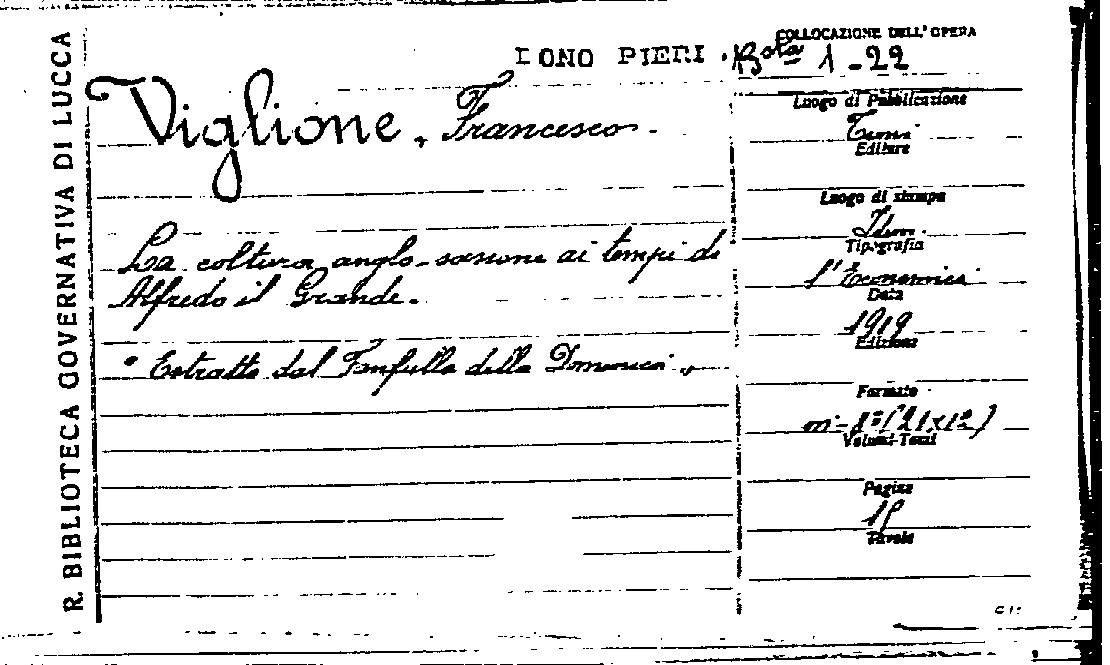 R. BIBLIOTECA GOVERNATIVA DI LUCCA
DONO PIERI
COLLOCAZIONE DELL'OPERA
Bta 1-22
Viglione, Francesco.
La coltura anglo-sassone ai tempi di
Alfredo il Grande.
"Estratto dal Fanfulla della Domenica"
Luogo di Pubblicazione
Editore
Luogo di stampa
Idem.
Tipografia
l'Economica
Data
1919
Edizione
Formato
in-8°(21x12)
Volumi-Tomi
Pagine
Tavole